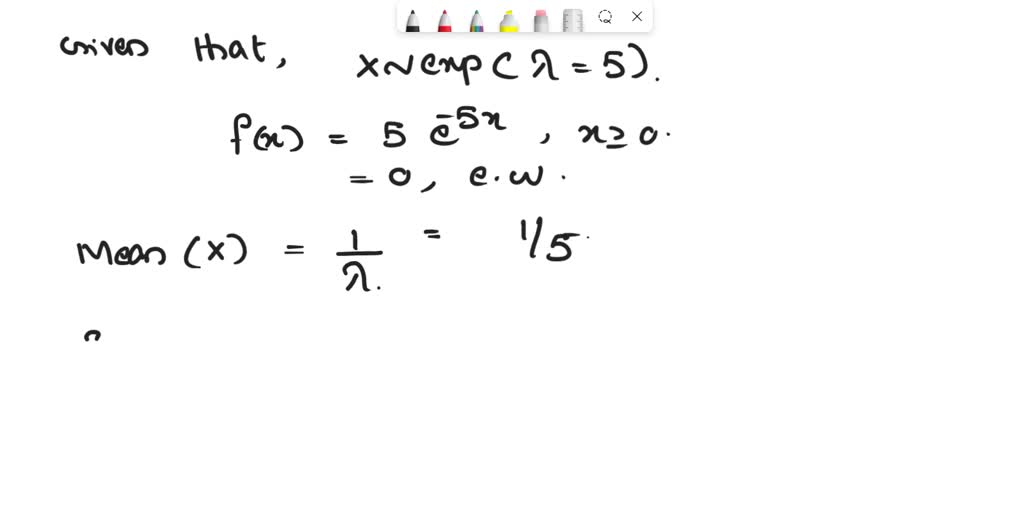 Given that, X~exp(λ = 5).
f(x) = 5 e^-5x, x ≥ 0.
= 0, e.w.
Mean (X) = 1/λ. = 1/5.